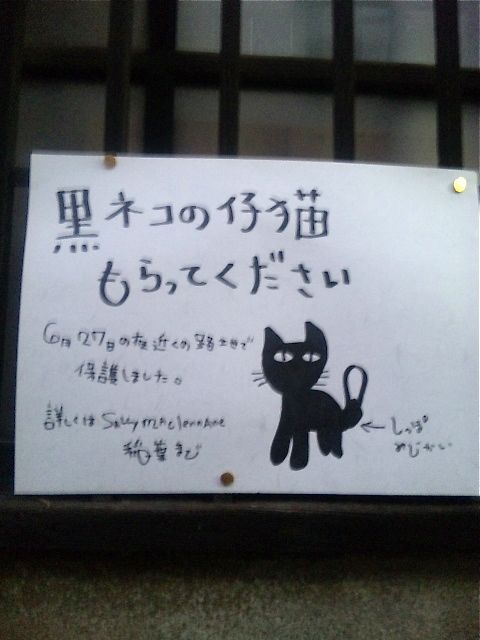 黒ネコの仔猫
もらってください
6月27日の夜近くの路地で
保護しました。
詳しくは Sally MacLennane
稲葉まで
←しっぽ
みじかい